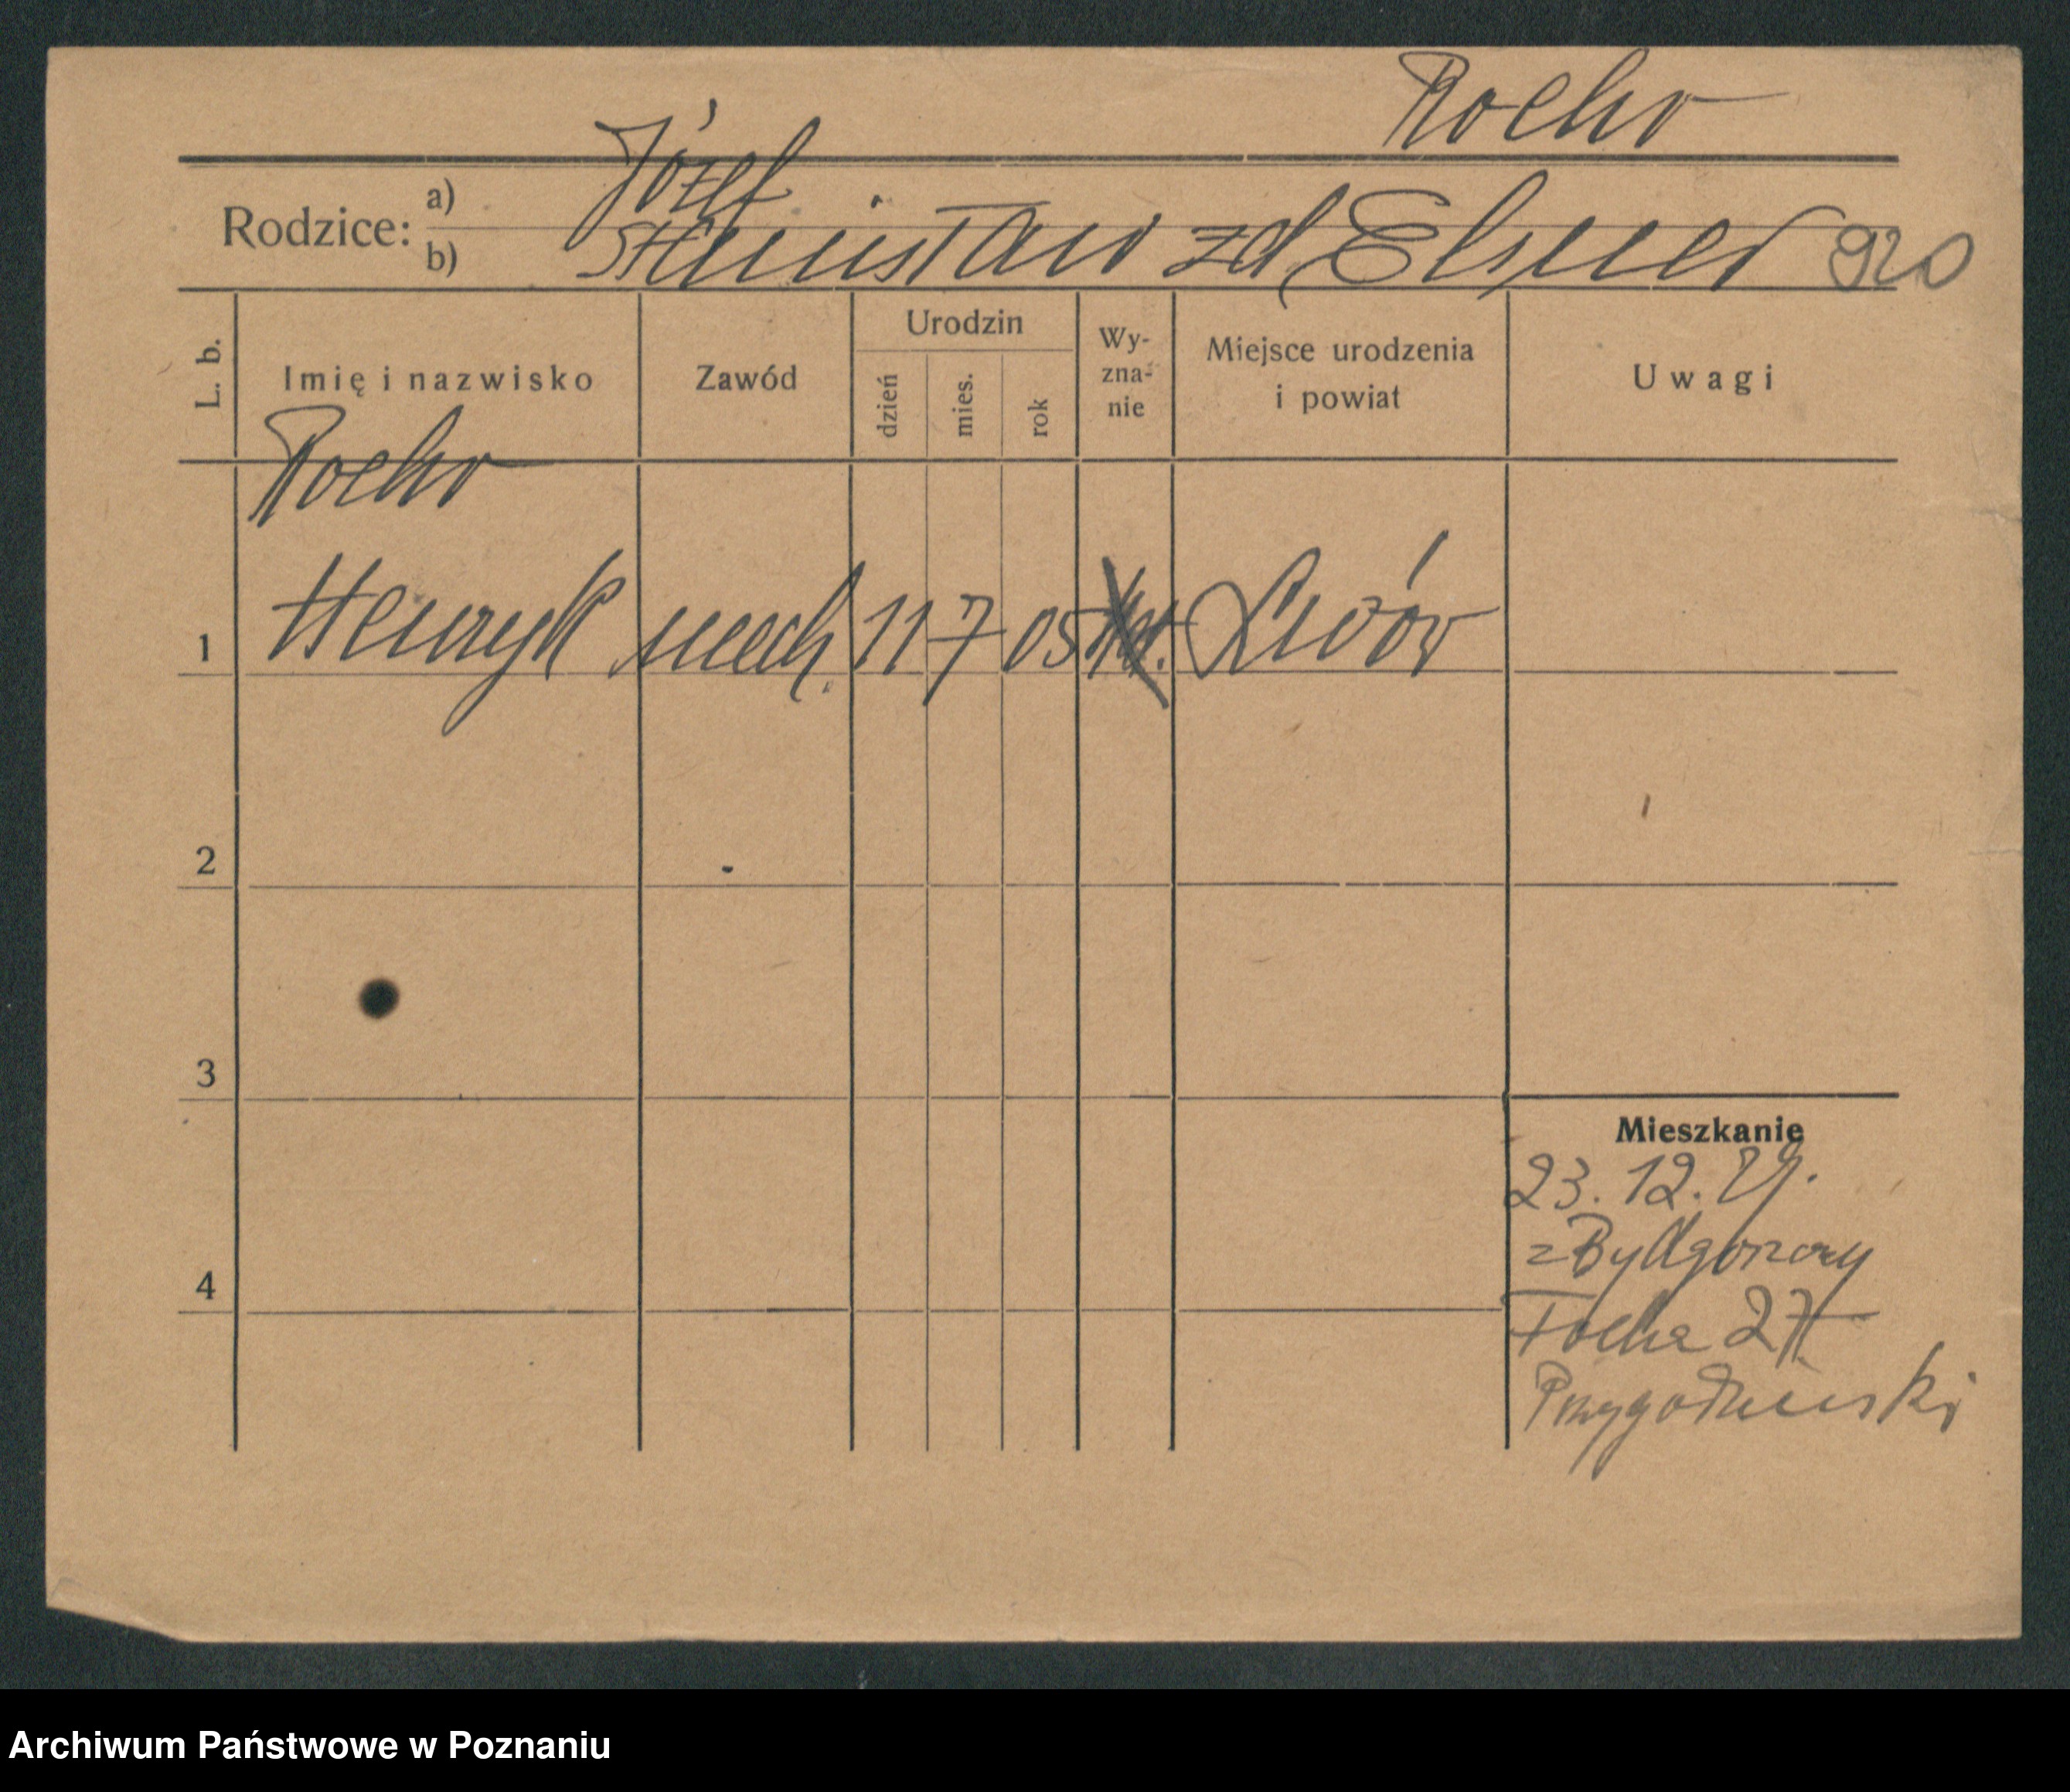 Roehr
Rodzice: a) Józef
b) Stanisław zd Elsner 920
L. b. Imię i nazwisko Zawód Urodzin dzień mies. rok Wy-zna-nie Miejsce urodzenia i powiat Uwagi
Roehr
1 Henryk mech. 11 7 05 Lwów
2
3
Mieszkanie
23. 12. 29.
z Bydgoszczy
4
Focha 27
Archiwum Państwowe w Poznaniu